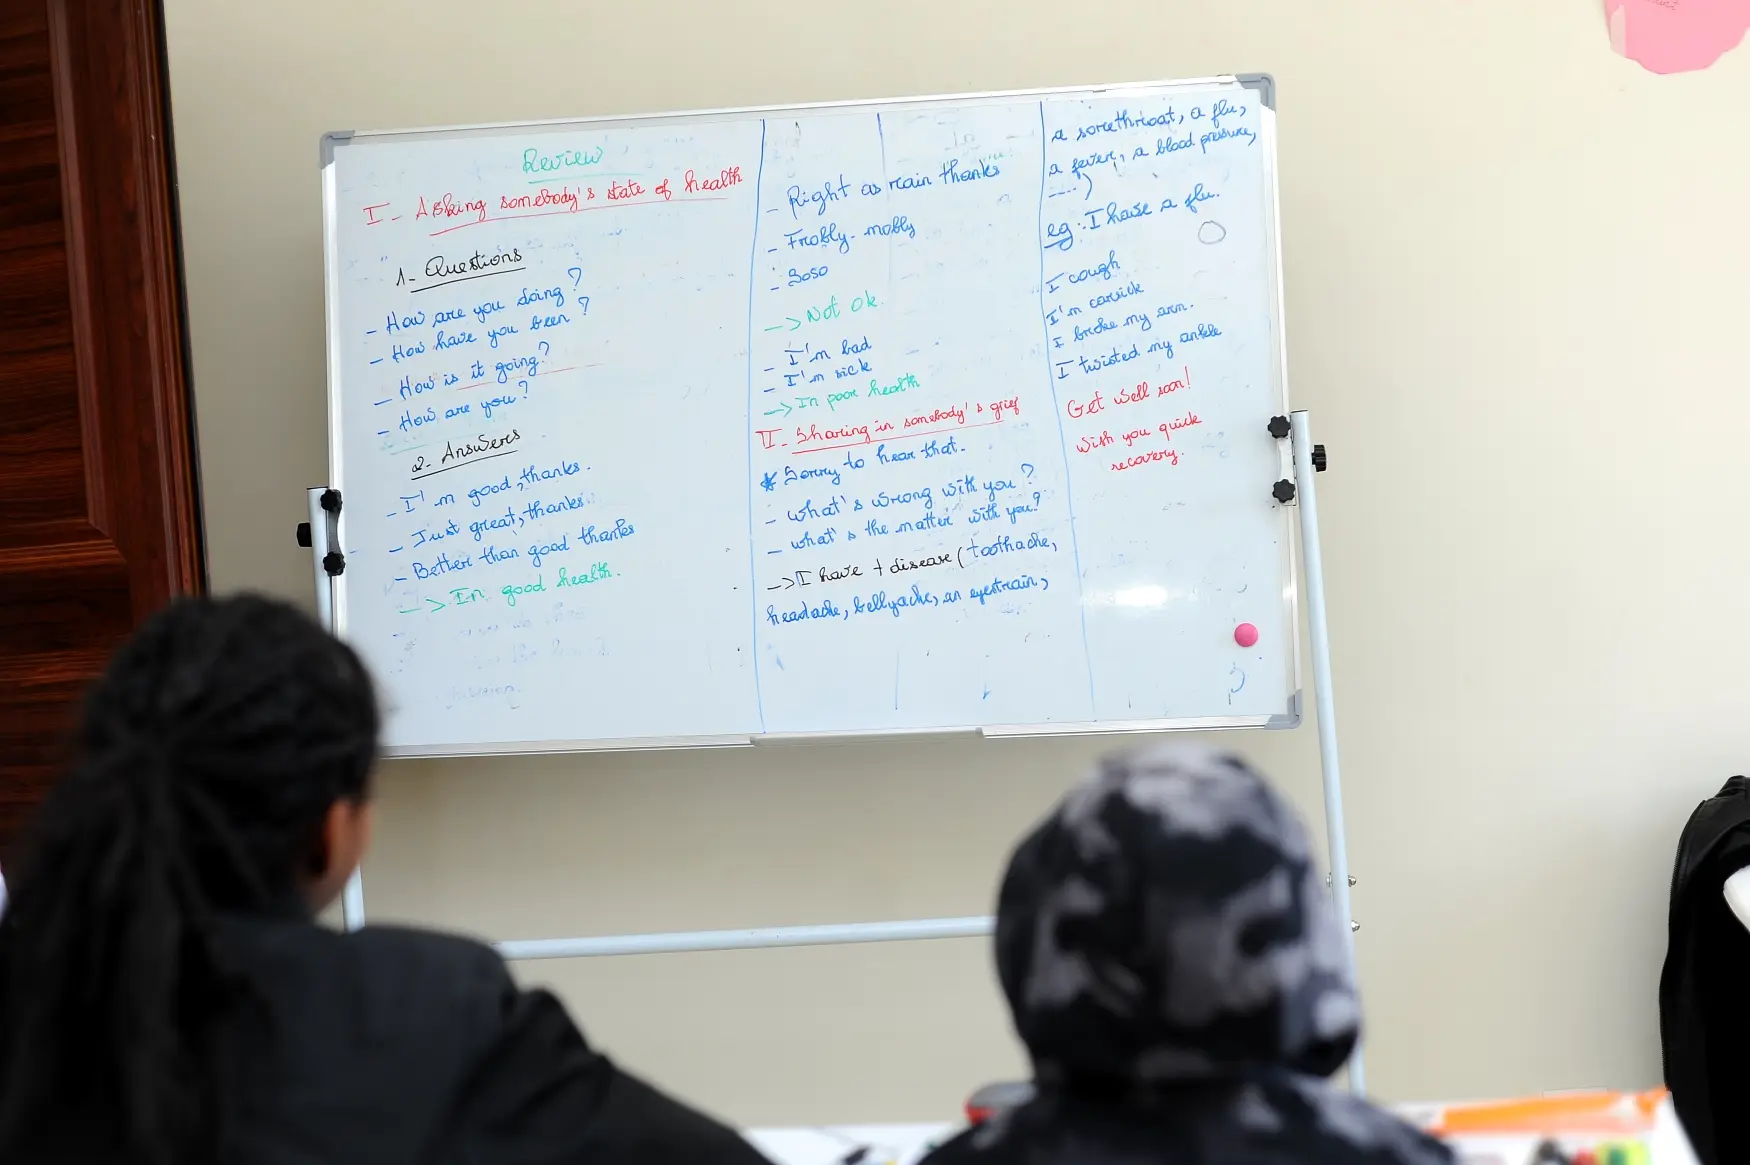 Review
I - Asking somebody's state of health
1- Questions
- How are you doing?
- How have you been?
- How is it going?
- How are you?
2- Answers
- I'm good, thanks.
- Just great, thanks.
- Better than good thanks
-> In good health.
- Right as rain thanks
- Frobly-mobly
- Soso
-> Not ok.
- I'm bad
- I'm sick
-> In poor health
II - Sharing in somebody's grief
* Sorry to hear that.
- what's wrong with you?
- what's the matter with you?
-> I have + disease (toothache,
headache, bellyache, an eyestrain,
a sorethroat, a flu,
a fever, a blood pressure,
....)
eg: I have a flu.
I cough
I'm carsick
I broke my arm.
I twisted my ankle
Get well soon!
Wish you quick
recovery.